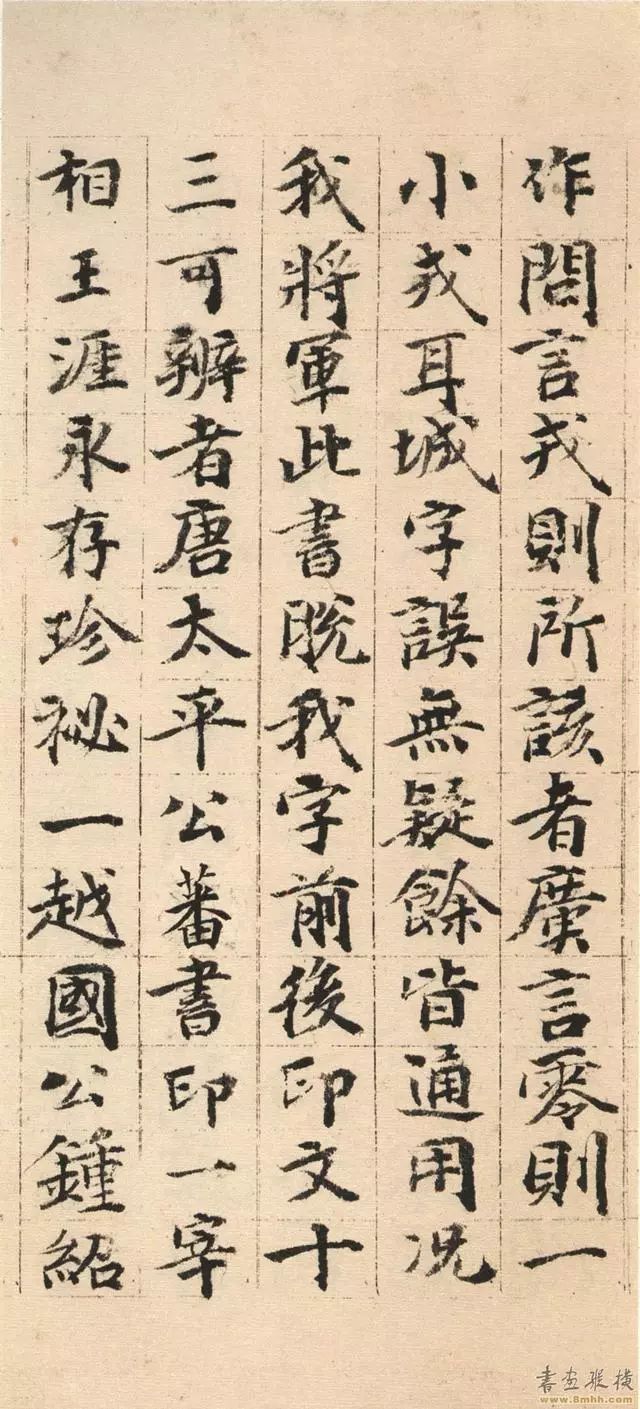 作問言戎則所該者廣言零則一
小戎耳城字誤無疑餘皆通用況
我將軍此書我字前後印文十
三可辨者唐太平公蕃書印一宰
相王涯永存珍祕一越國公鍾紹
書畫縱橫
www.8mhh.com